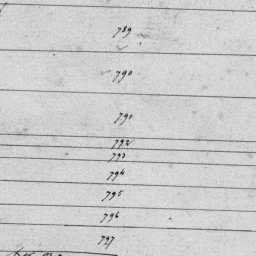 789
790
791
792
793
794
795
796
797